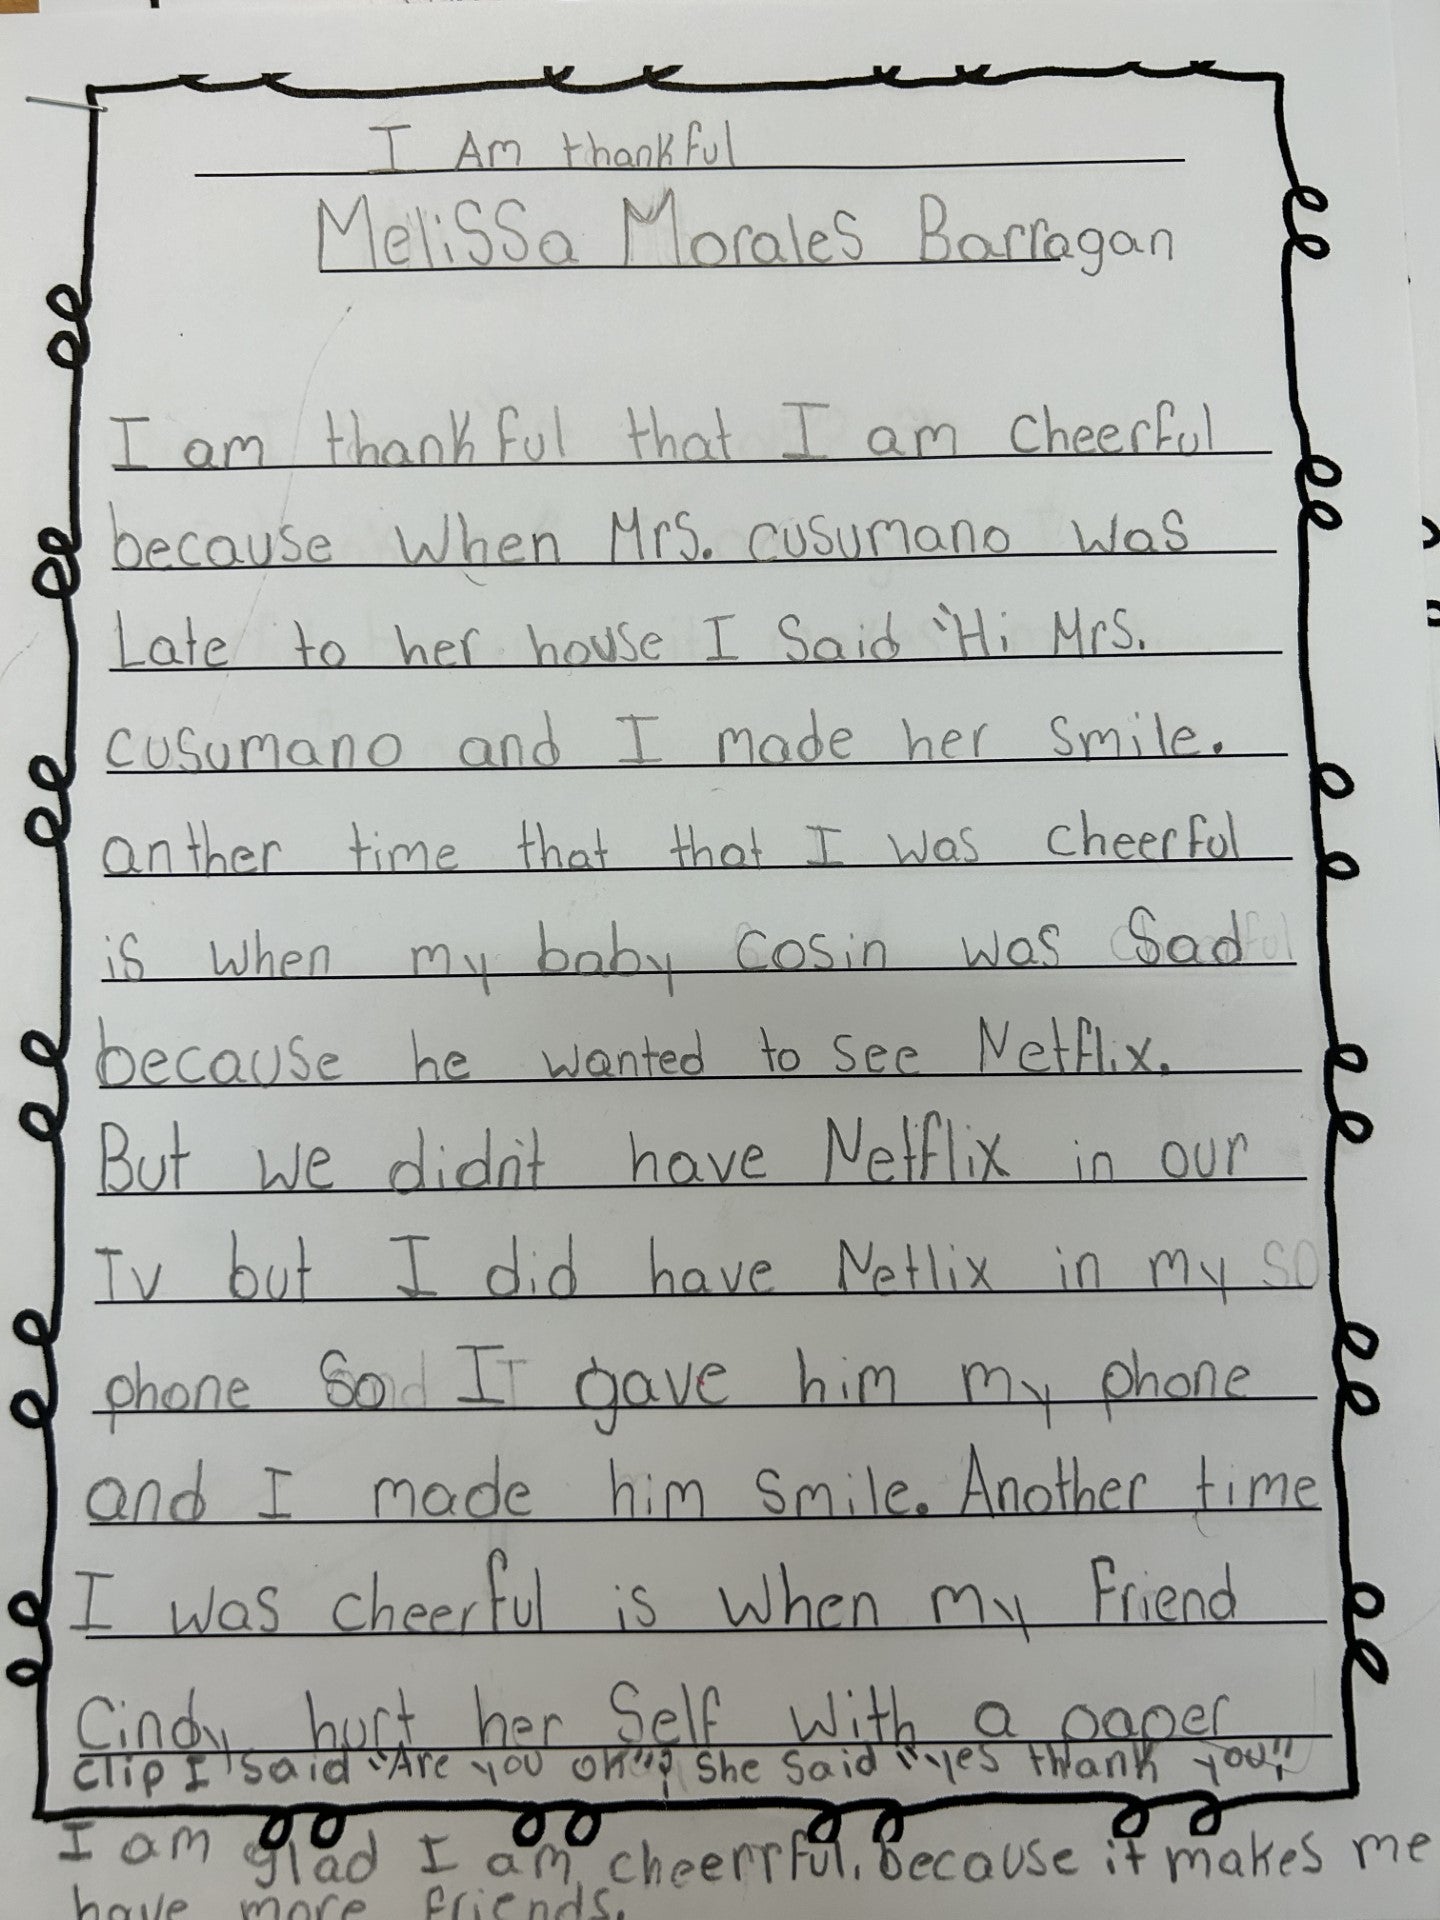 I Am thankful
MeliSSa MoraleS Barragan
I am thankful that I am cheerful
because when Mrs. cusumano was
Late to her house I Said "Hi Mrs.
cusumano and I made her smile.
anther time that that I was cheerful
is when my baby cosin was Sad
because he wanted to see Netflix.
But we didn't have Netflix in our
Tv but I did have Netlix in my
phone So I gave him my phone
and I made him smile. Another time
I was cheerful is when my Friend
Cindy hurt her Self with a paper
clip I said "Are you ok"? She said "yes thank you"!
I am glad I am cheerrful. because it makes me
have more friends.